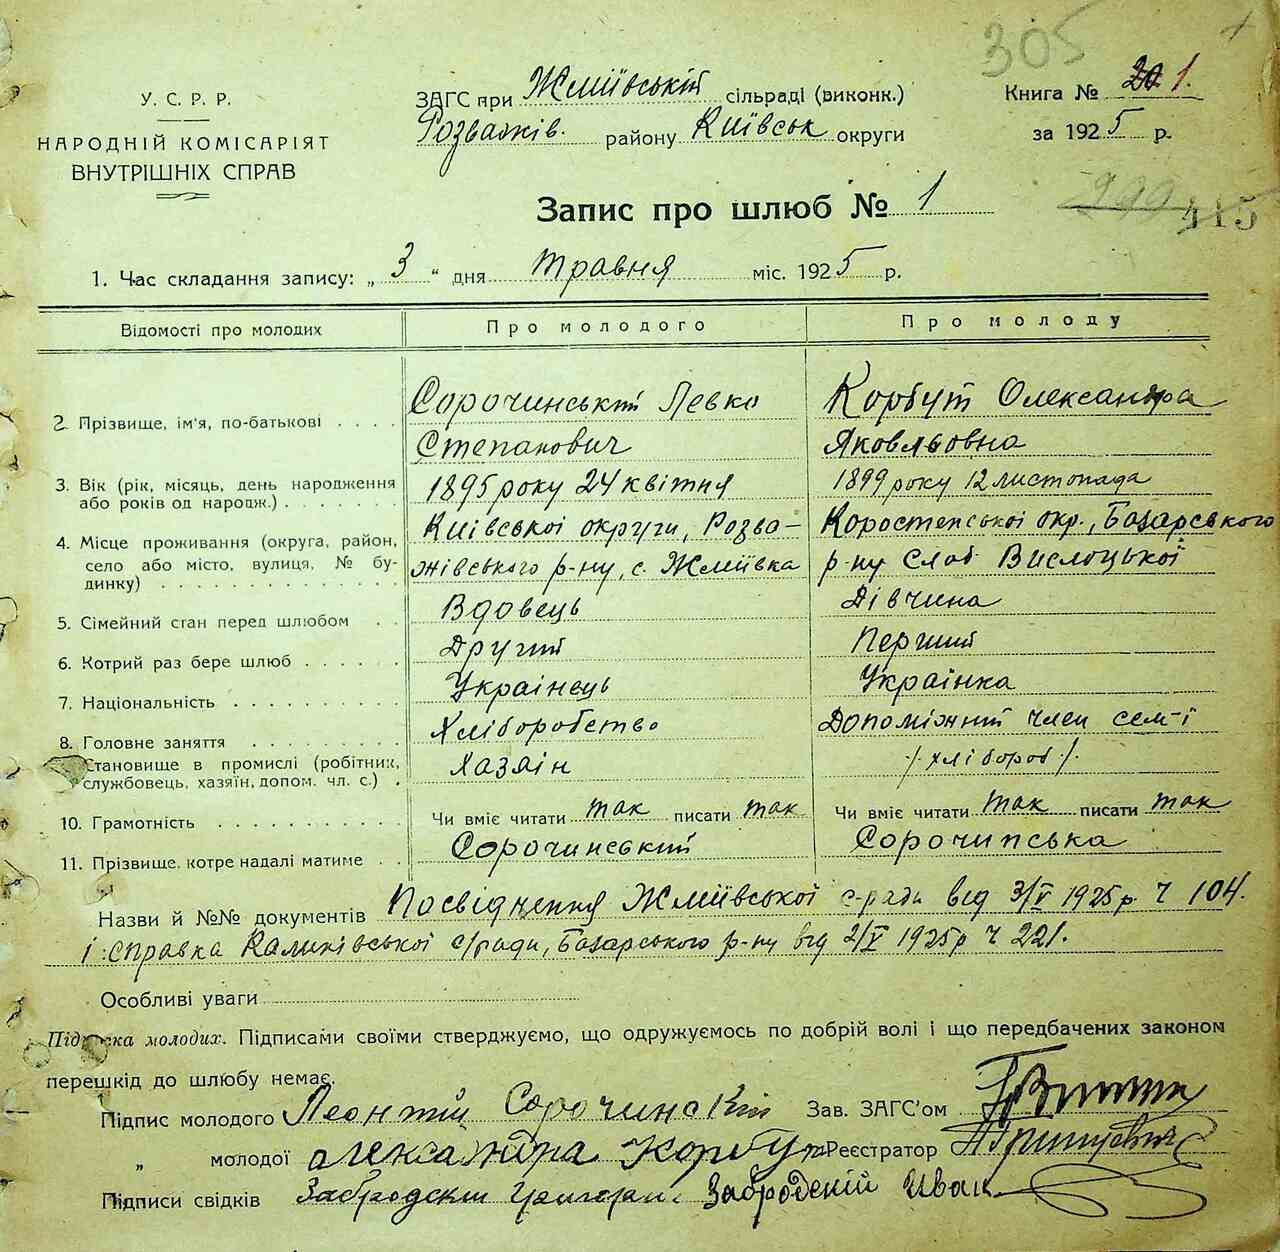 305
У. С. Р. Р.
НАРОДНІЙ КОМІСАРІЯТ
ВНУТРІШНІХ СПРАВ
ЗАГС при Жміївській сільраді (виконк.)
Розважів. району Київськ округи
Книга № 20 1.
за 1925 р.
Запис про шлюб № 1
299 415
1. Час складання запису: „ 3 “ дня травня міс. 1925 р.
Відомості про молодих Про молодого Про молоду
2. Прізвище, ім'я, по-батькові . . . . Сорочинський Левко Корбут Олександра
Степанович Яковльовна
3. Вік (рік, місяць, день народження 1895 року 24 квітня 1899 року 12 листопада
або років од народж.) . . . . . . .
4. Місце проживання (округа, район, Київської округи, Розва- Коростенської окр., Базарського
село або місто, вулиця, № бу- жівського р-ну, с. Жміївка р-ну Слоб Вислоцької
динку) . . . . . . . . . . . . . .
5. Сімейний стан перед шлюбом . . Вдовець Дівчина
6. Котрий раз бере шлюб . . . . . . Другий Перший
7. Національність . . . . . . . . . . Українець Українка
8. Головне заняття . . . . . . . . . Хліборобство Допоміжний член сем-ї
Становище в промислі (робітник, Хазяін /хлібороб/.
службовець, хазяїн, допом. чл. с.) .
10. Грамотність . . . . . . . . . . . Чи вміє читати так писати так Чи вміє читати так писати так
11. Прізвище, котре надалі матиме . . Сорочинський Сорочинська
Назви й №№ документів Посвідчення Жміївської с-ради від 3/V 1925 р. Ч 104.
і справка Калинівської с/ради, Базарського р-ну від 2/V 1925 р Ч 221.
Особливі уваги
Підписка молодих. Підписами своїми стверджуємо, що одружуємось по добрій волі і що передбачених законом
перешкід до шлюбу немає.
Підпис молодого Леонтій Сорочинский Зав. ЗАГС'ом
„ молодої александра Корбут Реєстратор
Підписи свідків Забродский Григорий Забродский Иван